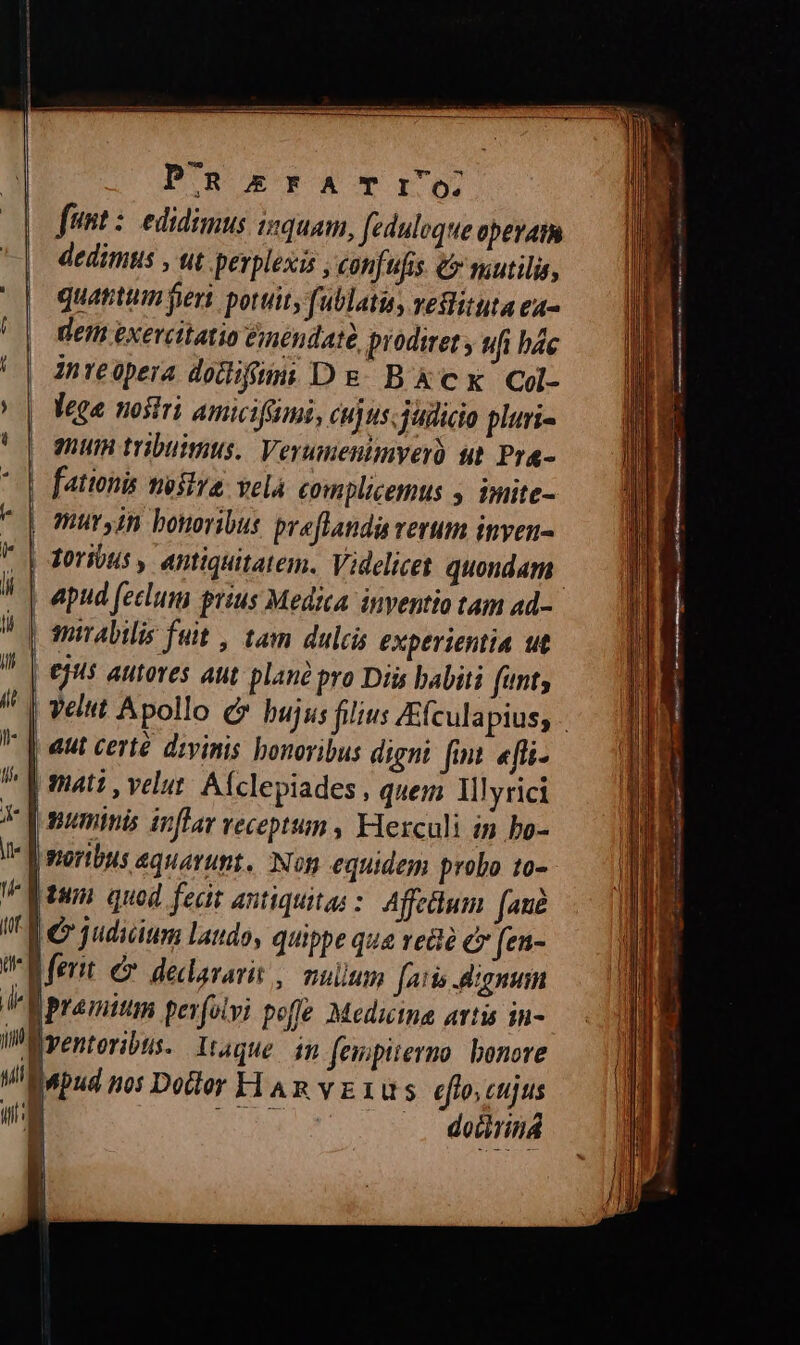 PRÆFATIO.
ſunt: edidimus inquam, ſeduloque operam
dedimus, ut perplexis, confuſis & mutilis,
quantum fieri potuit, ſublatis, reſtituta ea-
dem exercitatio emendatè prodiret, uſi hâc
in re opera doctiſſimi DE BACK Col-
legæ noſtri amiciſſimi, cujus judicio pluri-
mum tribuimus. Verumenimverò ut Præ-
fationis noſtræ vela complicemus, imite-
mur, in honoribus præſtandis rerum inven-
toribus, antiquitatem. Videlicet quondam
apud ſeclum prius Medica inventio tam ad-
mirabilis fuit, tam dulcis experientia ut
ejus autores aut planè pro Diis habiti ſunt,
velut Apollo & hujus filius Æſculapius,
aut certè divinis honoribus digni ſint æſti-
mati, velut Aſclepiades, quem Illyrici
numinis inſtar receptum, Herculi in ho-
noribus æquarunt. Non equidem probo to-
tum quod fecit antiquitas: Affectum ſanè
& judicium laudo, quippe quæ rectè & ſen-
ſerit & declararit, nullum ſatis dignum
præmium perſolvi poſſe Medicinæ artis in-
ventoribus. Itaque in ſempiterno honore
apud nos Doctor HARVEIUS eſto, cujus
doctrinâ